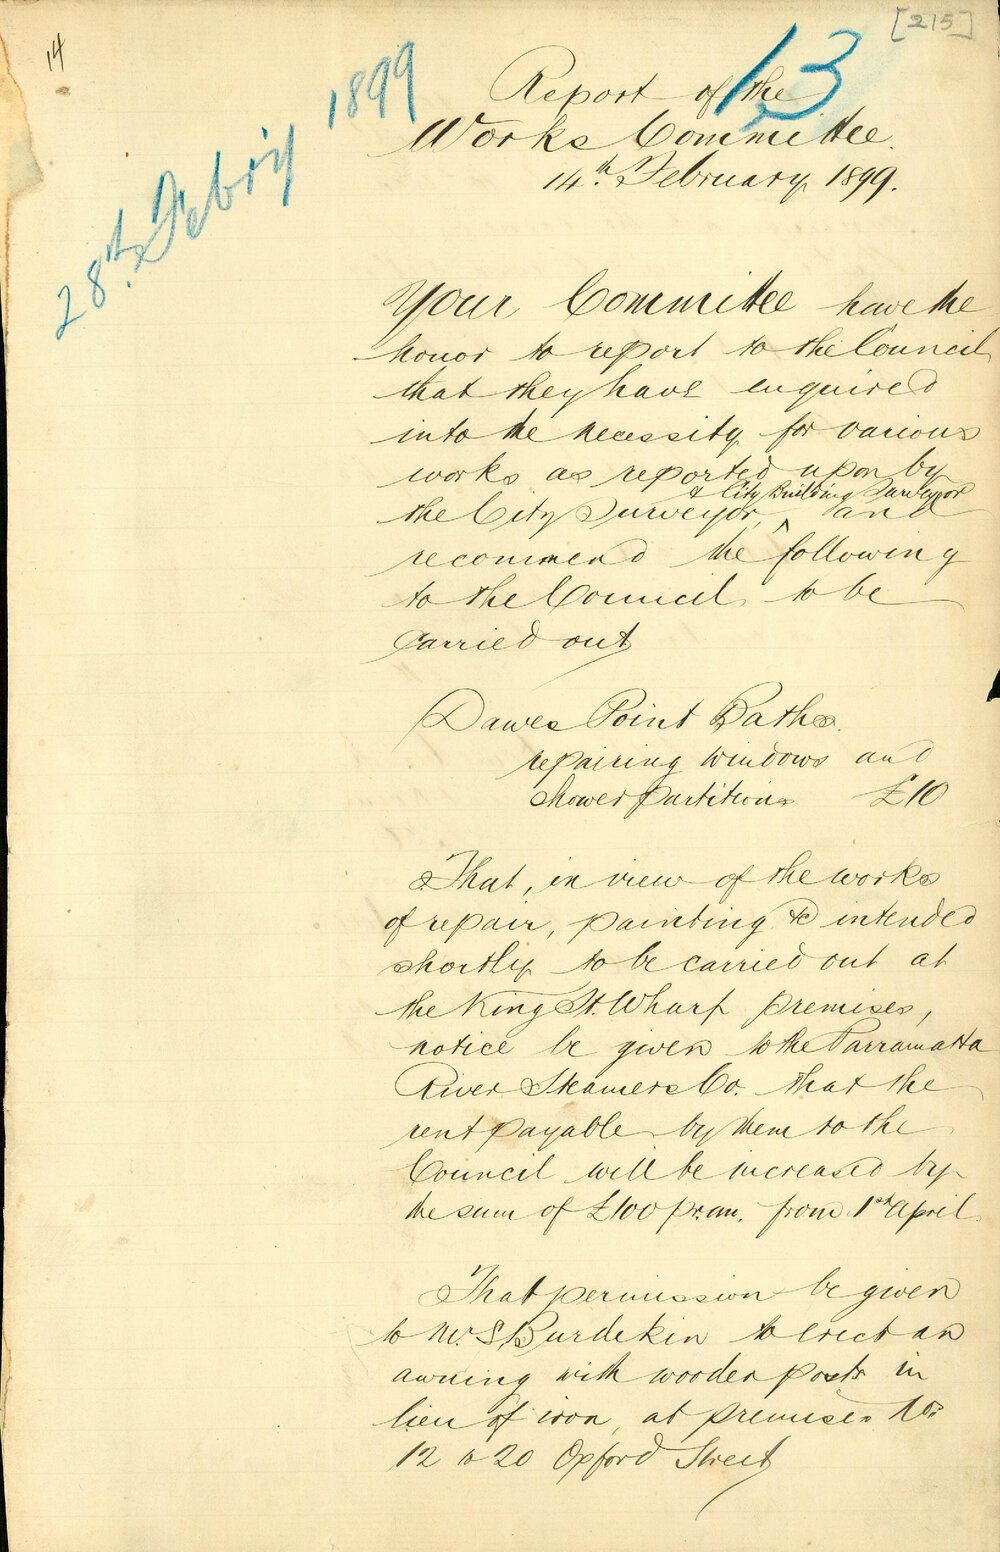 [215]
14
13
28th. Febry 1899
Report of the
Works Committee.
14th. February 1899.
Your Committee have the
honor to report to the Council
that they have enquired
into the necessity for various
works as reported upon by
& City Building Surveyor
the City Surveyor, ^ and
recommend the following
to the Council to be
carried out
Dawes Point Baths.
repairing windows and
shower partitions £10
That, in view of the works
of repair, painting &c intended
shortly to be carried out at
the King St. Wharf premises,
notice be given to the Parramatta
River Steamers Co. that the
rent payable by them to the
Council will be increased by
the sum of £100 pr. an. from 1st April
That permission be given
to Mr. S Burdekin to erect an
awning with wooden posts in
lieu of iron, at premises Nos.
12 to 20 Oxford Street